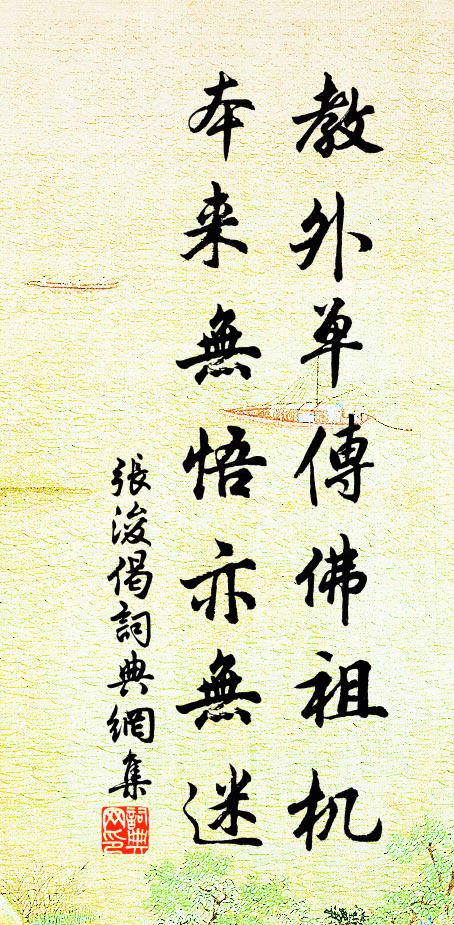 教外单傳佛祖机
本来無悟亦無迷
張浚偈詞典網集
詞典網印